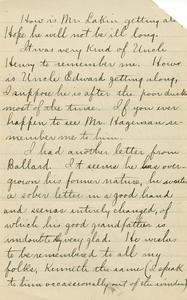 How is Mr. Lakin getting along
Hope he will not be ill long.
It was very kind of Uncle
Henry to remember me. How
is Uncle Edward getting along,
I suppose he is after the poor ducks
most of the time. If you ever
happen to see Mr. Hageman re-
member me to him.
I had another letter from
Ballard. It seems he has over-
grown his former nature, he writes
a sober letter in a good hand
and seems entirely changed, of
which his good grandfather is
undoubtedly very glad. He wishes
to be remembered to all my
folks, Kenneth the same (I speak
to him occasionally out of the window)